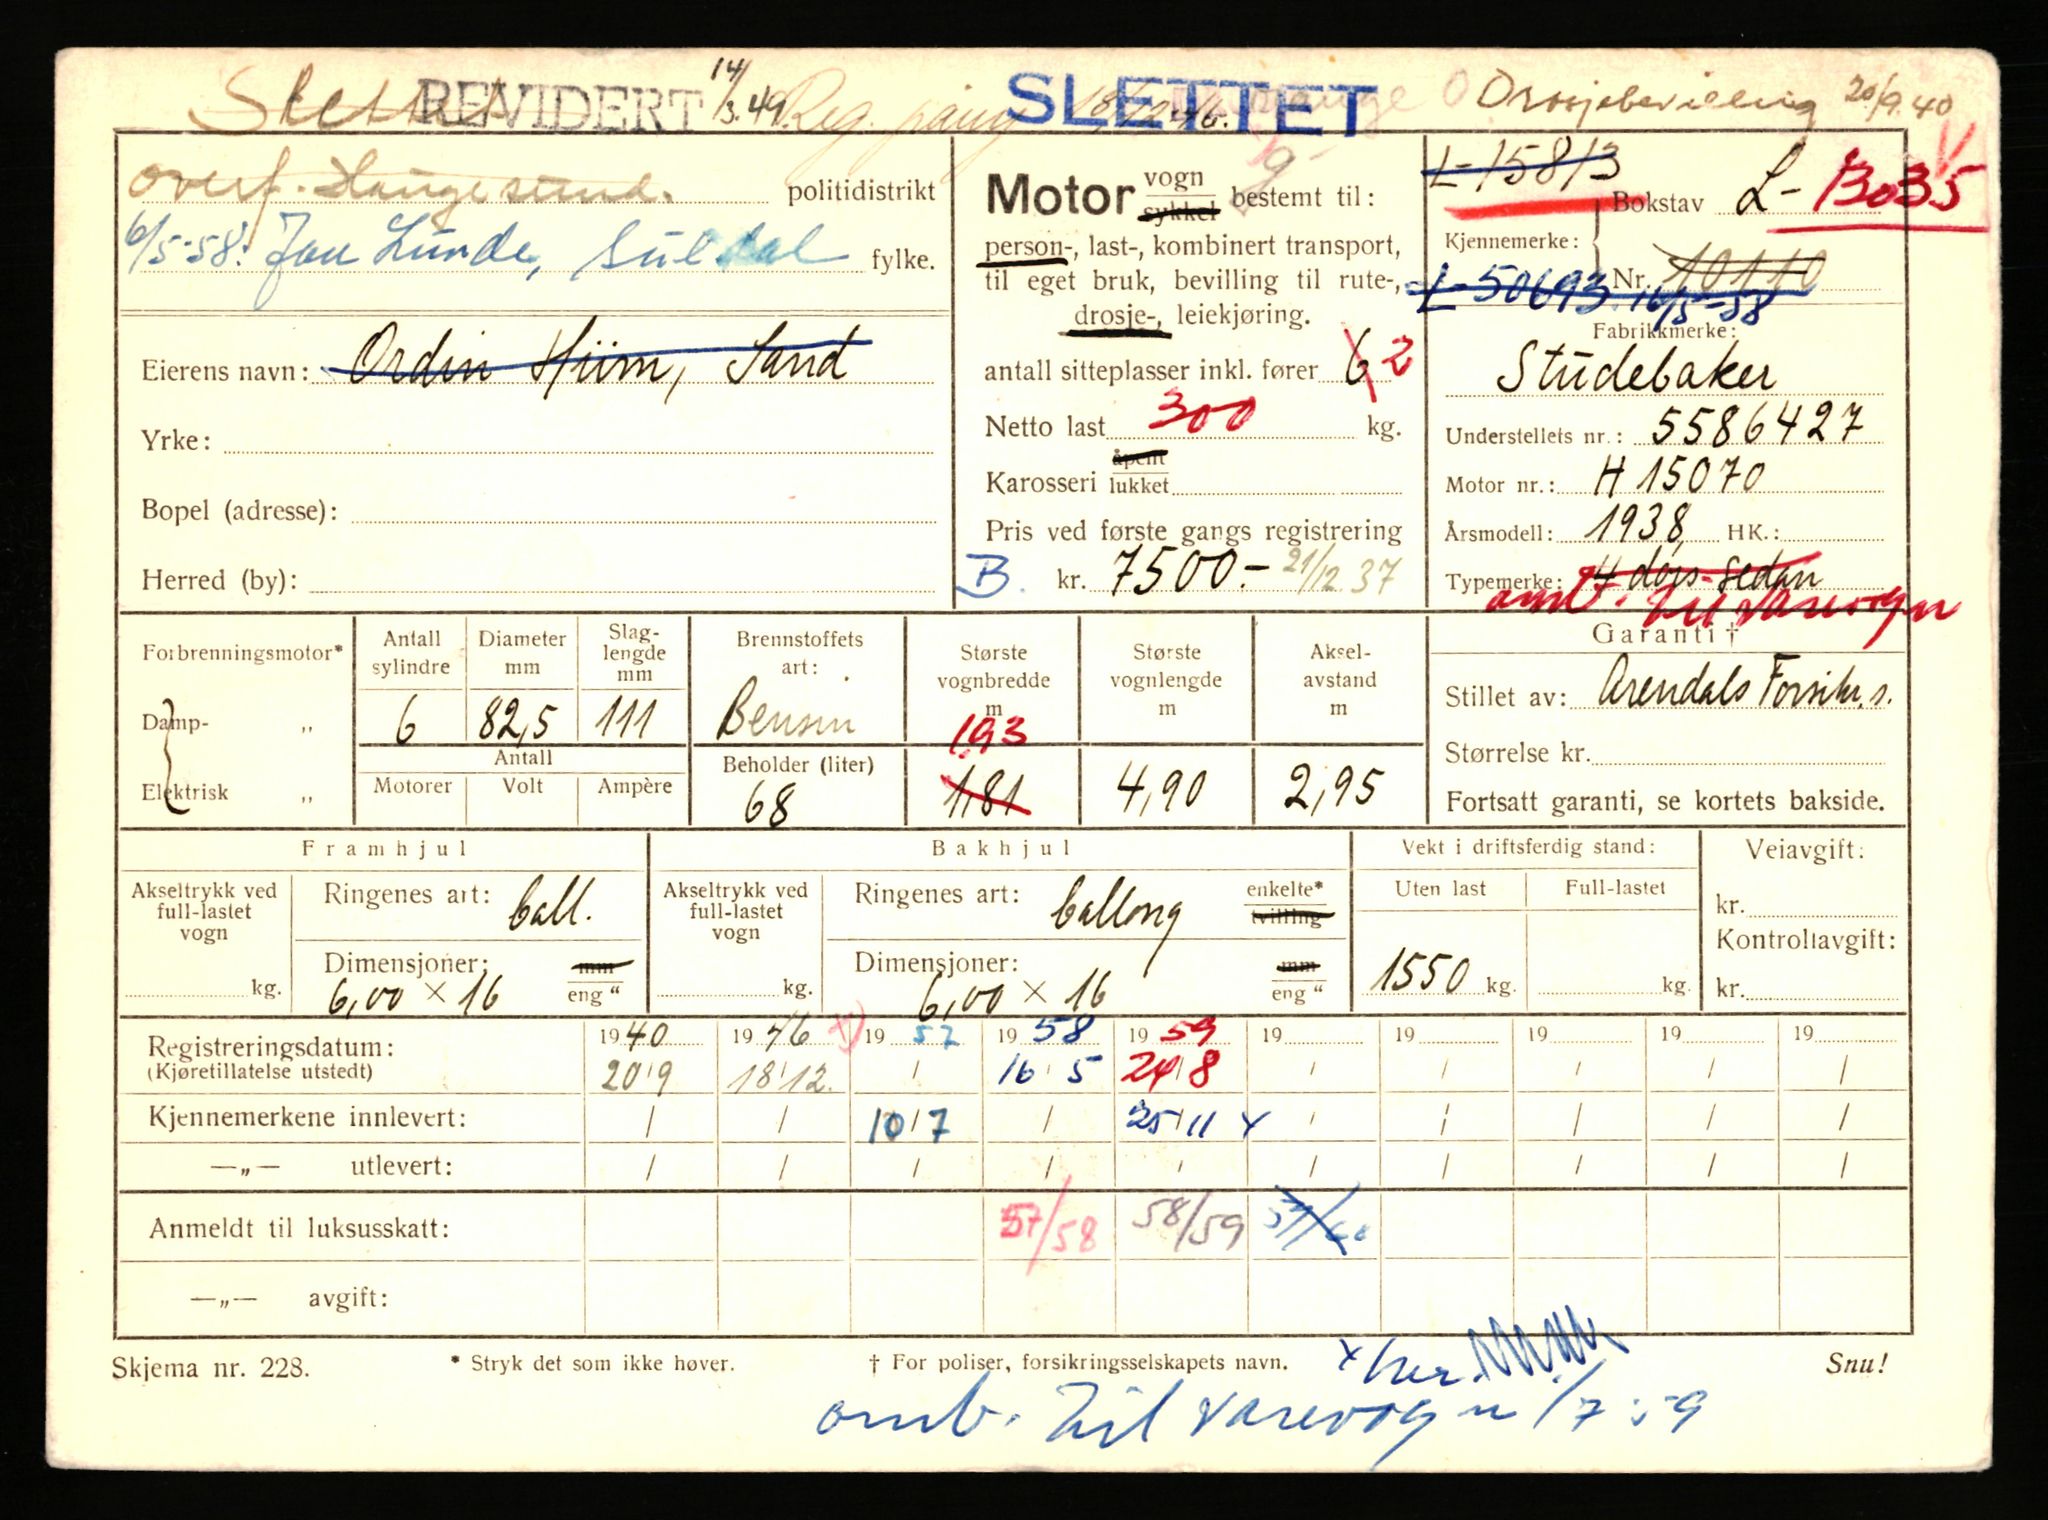 Slettet REVIDERT 14/3.49. Reg. 18/12.46. SLETTET Drosjebevilling 20/9.40
overf. Haugesund. politidistrikt
6/5-58: Jon Lunde, Suldal fylke.
Eierens navn: Ordin Hiim, Sand
Yrke:
Bopel (adresse):
Herred (by):
Motor vogn sykkel bestemt til:
person-, last-, kombinert transport,
til eget bruk, bevilling til rute-,
drosje-, leiekjøring.
antall sitteplasser inkl. fører 6 2
Netto last 300 kg.
Karosseri åpent lukket
Pris ved første gangs registrering
B. kr. 7500.- 21/12.37
L-15813
Bokstav L-13035
Kjennemerke:
Nr. 10110
L-50693. 16/5-58
Fabrikkmerke:
Studebaker
Understellets nr.: 5586427
Motor nr.: H 15070
Årsmodell: 1938, HK.:
Typemerke: 4 dørs sedan
omb. til varevogn
Garanti †
Stillet av: Arendals Forsikr. s.
Størrelse kr.
Fortsatt garanti, se kortets bakside.
Forbrenningsmotor*
Damp- „
Elektrisk „
Antall sylindre
6
Diameter mm
82,5
Slag-
lengde
mm
111
Antall
Motorer Volt Ampère
Brennstoffets
art:
Bensin
Beholder (liter)
68
Største
vognbredde
m
1,93
1,81
Største
vognlengde
m
4,90
Aksel-
avstand
m
2,95
Framhjul
Akseltrykk ved
full-lastet
vogn
kg.
Ringenes art: ball.
Dimensjoner: mm
6,00 × 16 eng "
Bakhjul
Akseltrykk ved
full-lastet
vogn
kg.
Ringenes art: ballong enkelte* tvilling
Dimensjoner: mm
6,00 × 16 eng "
Vekt i driftsferdig stand:
Uten last Full-lastet
1550 kg. kg.
Veiavgift:
kr.
Kontrollavgift:
kr.
Registreringsdatum: 1940 1946 1957 1958 1959 19 19 19 19 19
(Kjøretillatelse utstedt) 20/9 18/12. / 16/5 24/8 / / / / /
Kjennemerkene innlevert: / / 10/7 / 25/11 x / / / / /
—„— utlevert: / / / / / / / / / /
Anmeldt til luksusskatt: 57/58 58/59
—„— avgift:
Skjema nr. 228. * Stryk det som ikke høver. † For poliser, forsikringsselskapets navn. x her. Snu!
omb. til varevogn 1/7-59